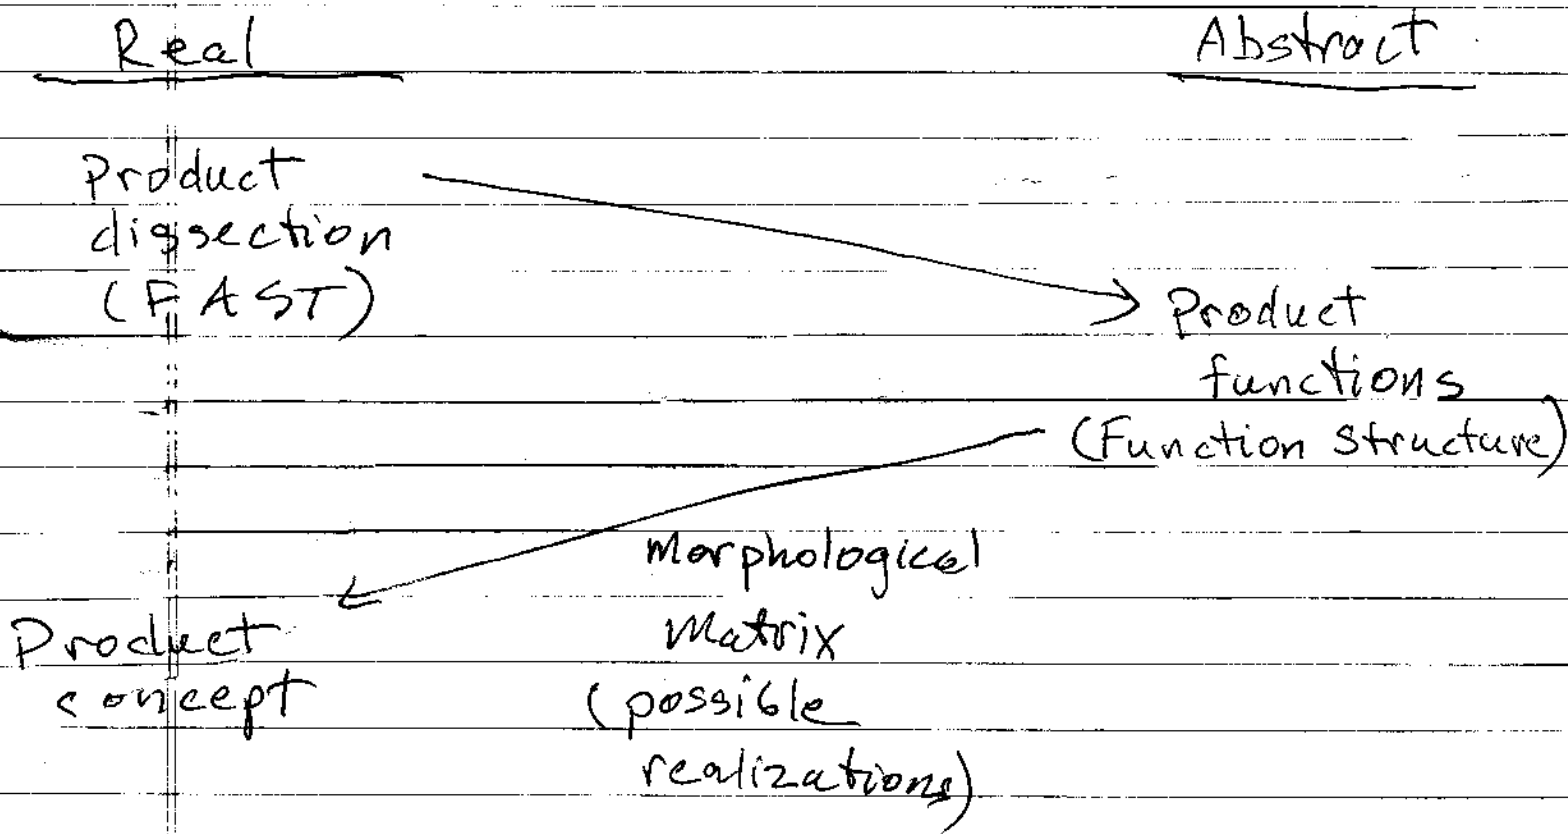 Real
Abstract
Product
dissection
(FAST)
Product
functions
(Function Structure)
Morphological
Matrix
(possible
realizations)
Product
concept